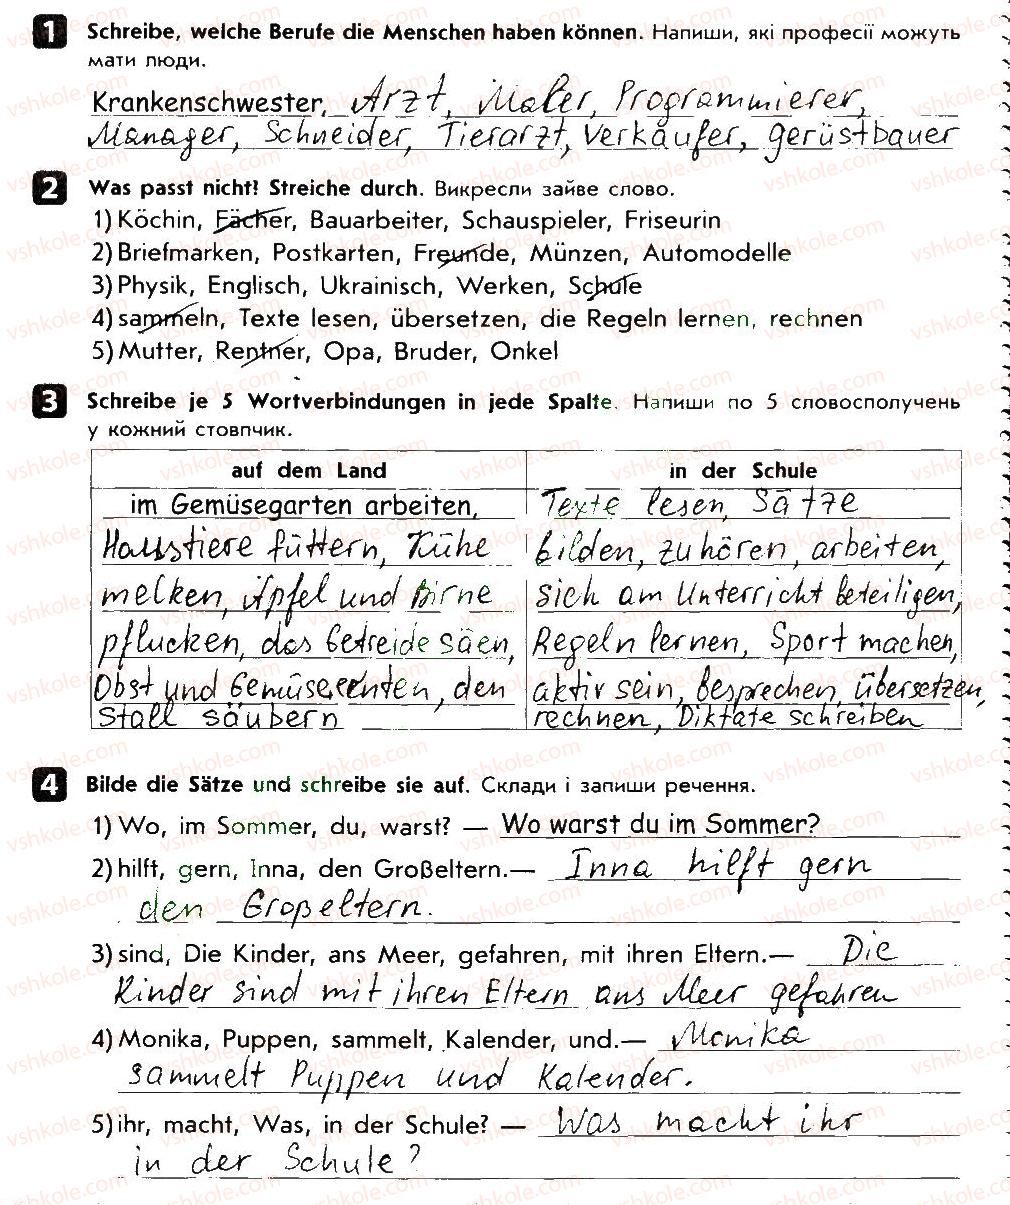 1 Schreibe, welche Berufe die Menschen haben können. Напиши, які професії можуть
мати люди.
Krankenschwester, Arzt, Maler, Programmierer,
Manager, Schneider, Tierarzt, Verkäufer, gerüstbauer
2 Was passt nicht? Streiche durch. Викресли зайве слово.
1) Köchin, Fächer, Bauarbeiter, Schauspieler, Friseurin
2) Briefmarken, Postkarten, Freunde, Münzen, Automodelle
3) Physik, Englisch, Ukrainisch, Werken, Schule
4) sammeln, Texte lesen, übersetzen, die Regeln lernen, rechnen
5) Mutter, Rentner, Opa, Bruder, Onkel
3 Schreibe je 5 Wortverbindungen in jede Spalte. Напиши по 5 словосполучень
у кожний стовпчик.
auf dem Land
im Gemüsegarten arbeiten,
Haustiere füttern, Kühe
melken, Äpfel und Birne
pflucken, das Getreide säen,
Obst und Gemüse ernten, den
Stall säubern
in der Schule
Texte lesen, Sätze
bilden, zuhören, arbeiten,
sich am Unterricht beteiligen,
Regeln lernen, Sport machen,
aktiv sein, besprechen, übersetzen,
rechnen, Diktate schreiben
4 Bilde die Sätze und schreibe sie auf. Склади і запиши речення.
1) Wo, im Sommer, du, warst? — Wo warst du im Sommer?
2) hilft, gern, Inna, den Großeltern.— Inna hilft gern
den Großeltern.
3) sind, Die Kinder, ans Meer, gefahren, mit ihren Eltern.— Die
Kinder sind mit ihren Eltern ans Meer gefahren
4) Monika, Puppen, sammelt, Kalender, und.— Monika
sammelt Puppen und Kalender.
5) ihr, macht, Was, in der Schule? — Was macht ihr
in der Schule?
vshkole.com